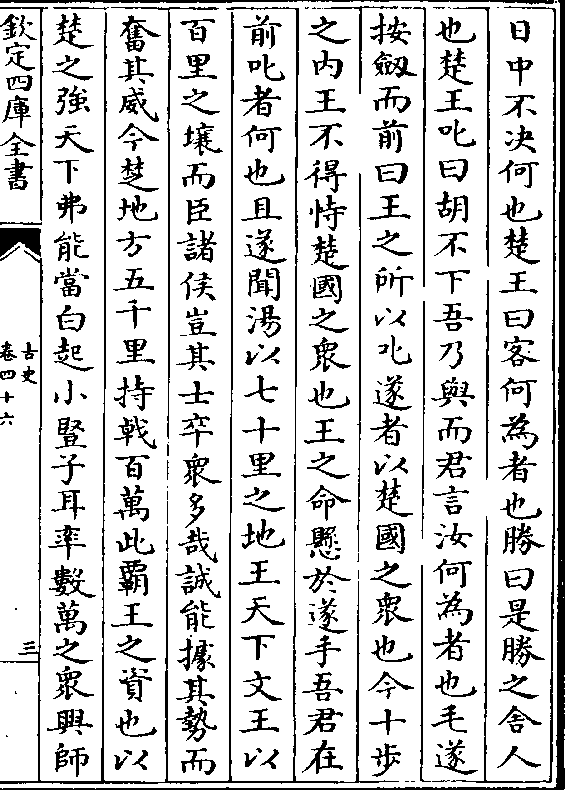 日中不決何也楚王曰客何為者也勝曰是勝之舎人
也楚王叱曰胡不下吾乃與而君言汝何為者也毛遂
按劔而前曰王之所以叱遂者以楚國之衆也今十歩
之内王不得恃楚國之衆也王之命懸於遂手吾君在
前叱者何也且遂聞湯以七十里之地王天下文王以
百里之壤而臣諸侯豈其士卒衆多哉誠能據其勢而
奮其威今楚地方五千里持戟百萬此霸王之資也以
楚之強天下弗能當白起小豎子耳率數萬之衆興師
欽定四庫全書
古史
卷四十六
三